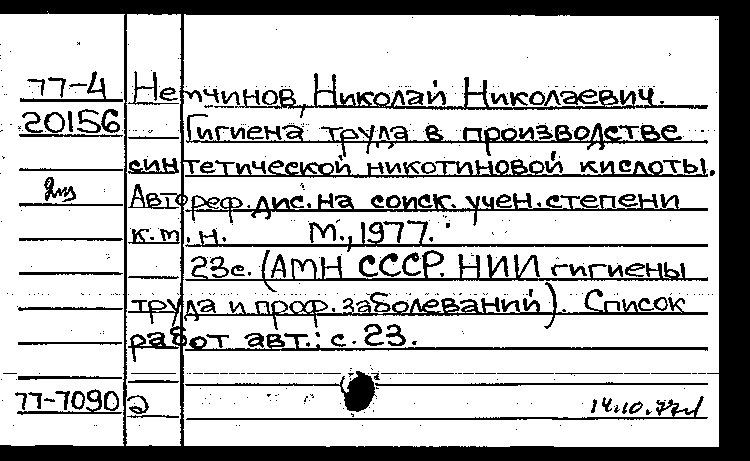 77-4 Немчинов, Николай Николаевич.
20156 Гигиена труда в производстве
синтетической никотиновой кислоты.
2м3 Автореф. дис. на соиск. учен. степени
к.т.н. М., 1977.
23с. (АМН СССР. НИИ гигиены
труда и проф. заболеваний). Список
работ авт.: с. 23.
77-7090 д 14.10.77